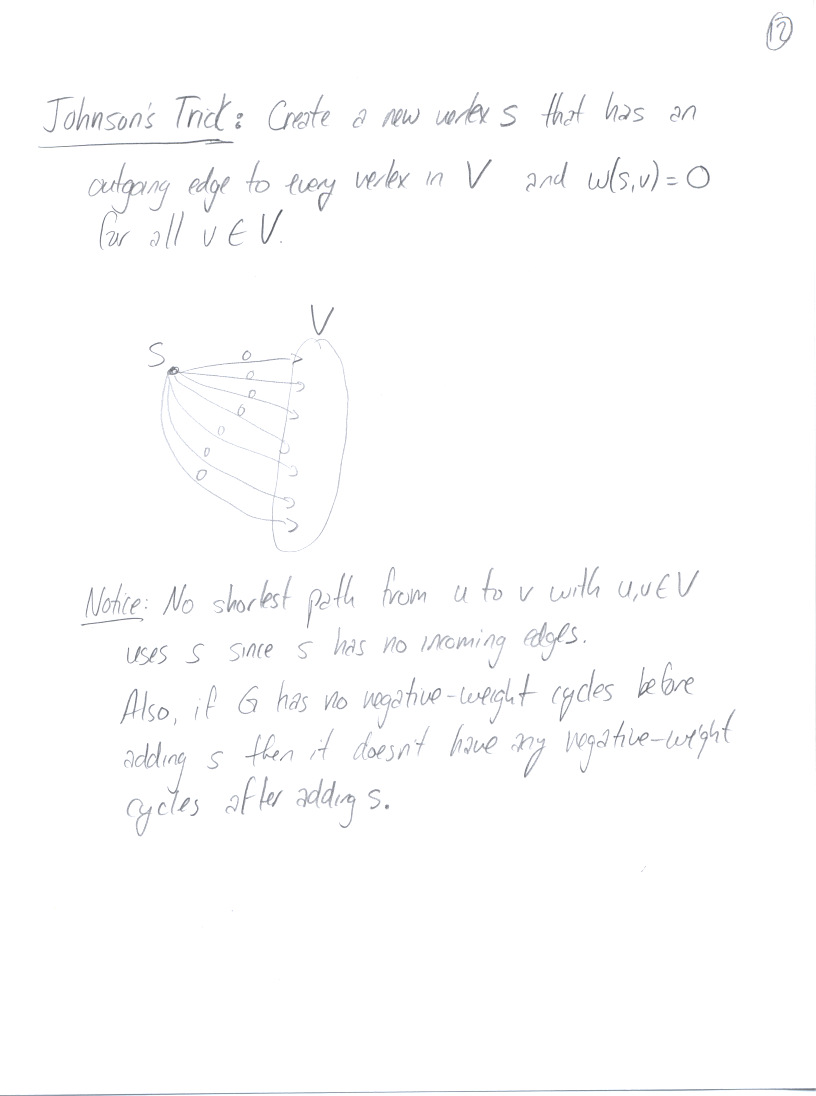 12
Johnson's Trick: Create a new vertex s that has an
outgoing edge to every vertex in V and w(s,v) = 0
for all v ∈ V.
V
S
0
0
0
0
0
0
0
Notice: No shortest path from u to v with u,v ∈ V
uses s since s has no incoming edges.
Also, if G has no negative-weight cycles before
adding s then it doesn't have any negative-weight
cycles after adding s.